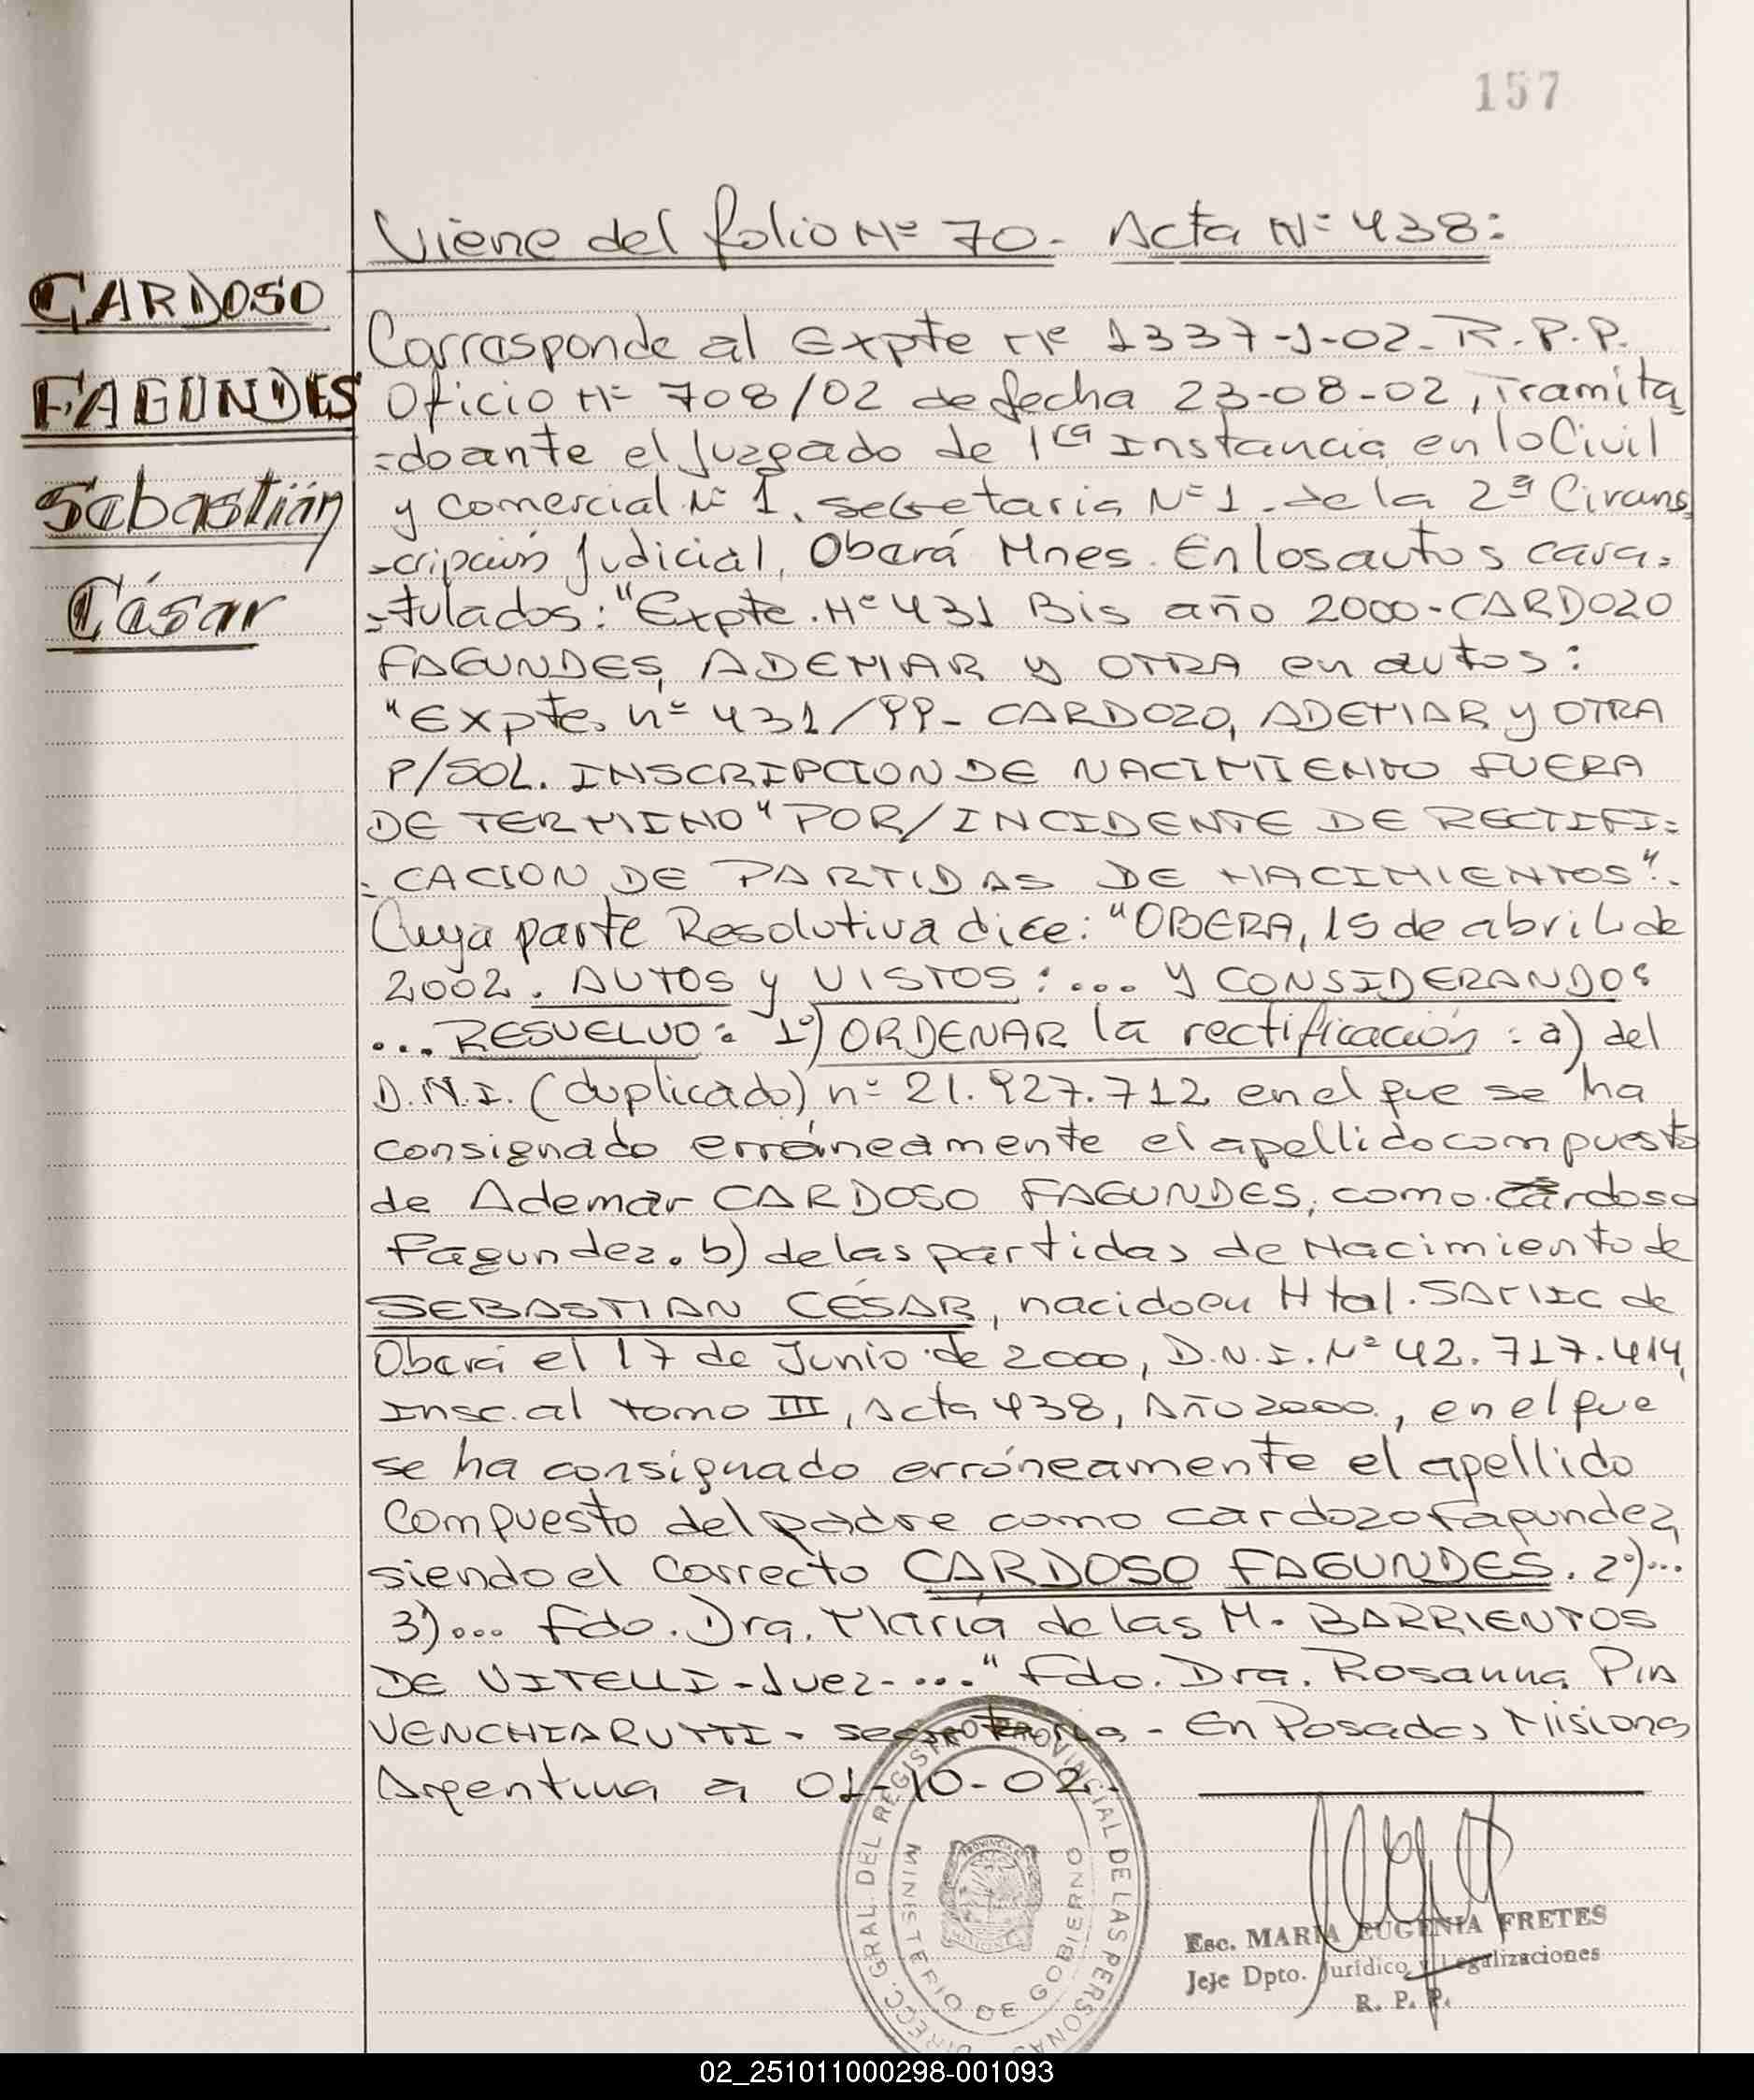 157
Viene del folio Nº 70. Acta Nº 438:
CARDOSO
FAGUNDES
Sebastián
César
Corresponde al Expte Nº 1337-J-02. R.P.P.
Oficio Nº 708/02 de fecha 23-08-02, Tramita
=do ante el Juzgado de 1ra Instancia en lo Civil
y Comercial Nº 1, Secretaria Nº 1. de la 2ª Circuns
=cripción Judicial, Oberá Mnes. En los autos cara=
=tulados: "Expte. Nº 431 Bis año 2000-CARDOZO
FAGUNDES, ADEMAR y OTRA en autos:
"Expte. nº 431/99- CARDOZO, ADEMAR y OTRA
P/SOL. INSCRIPCION DE NACIMIENTO FUERA
DE TERMINO" POR/INCIDENTE DE RECTIFI=
=CACION DE PARTIDAS DE NACIMIENTOS".
Cuya parte Resolutiva dice: "OBERA, 15 de abril de
2002. AUTOS y VISTOS: ... y CONSIDERANDO:
... RESUELVO: 1º) ORDENAR la rectificación: a) del
D.N.I. (duplicado) nº 21.927.712 en el que se ha
consignado erróneamente el apellido compuesto
de Ademar CARDOSO FAGUNDES, como cardoso
Fagundez. b) de las partidas de Nacimiento de
SEBASTIAN CÉSAR, nacido en Htal. SAMIC de
Oberá el 17 de Junio de 2000, D.N.I. Nº 42.717.414,
Insc. al tomo III, Acta 438, Año 2000, en el que
se ha consignado erróneamente el apellido
Compuesto del padre como cardozo Fagundez,
siendo el Correcto CARDOSO FAGUNDES. 2º)...
3º)... Fdo. Dra. María de las M. BARRIENTOS
DE VITELLI-Juez-..." Fdo. Dra. Rosanna PIA
VENCHIARUTTI - secretaria - En Posadas Misiones
Argentina a 01-10-02.
DIRECC. GRAL. DEL REGISTRO PROVINCIAL DE LAS PERSONAS
MINISTERIO DE GOBIERNO
Esc. MARIA EUGENIA FRETES
Jeje Dpto. Jurídico y Legalizaciones
R. P. P.
02_251011000298-001093